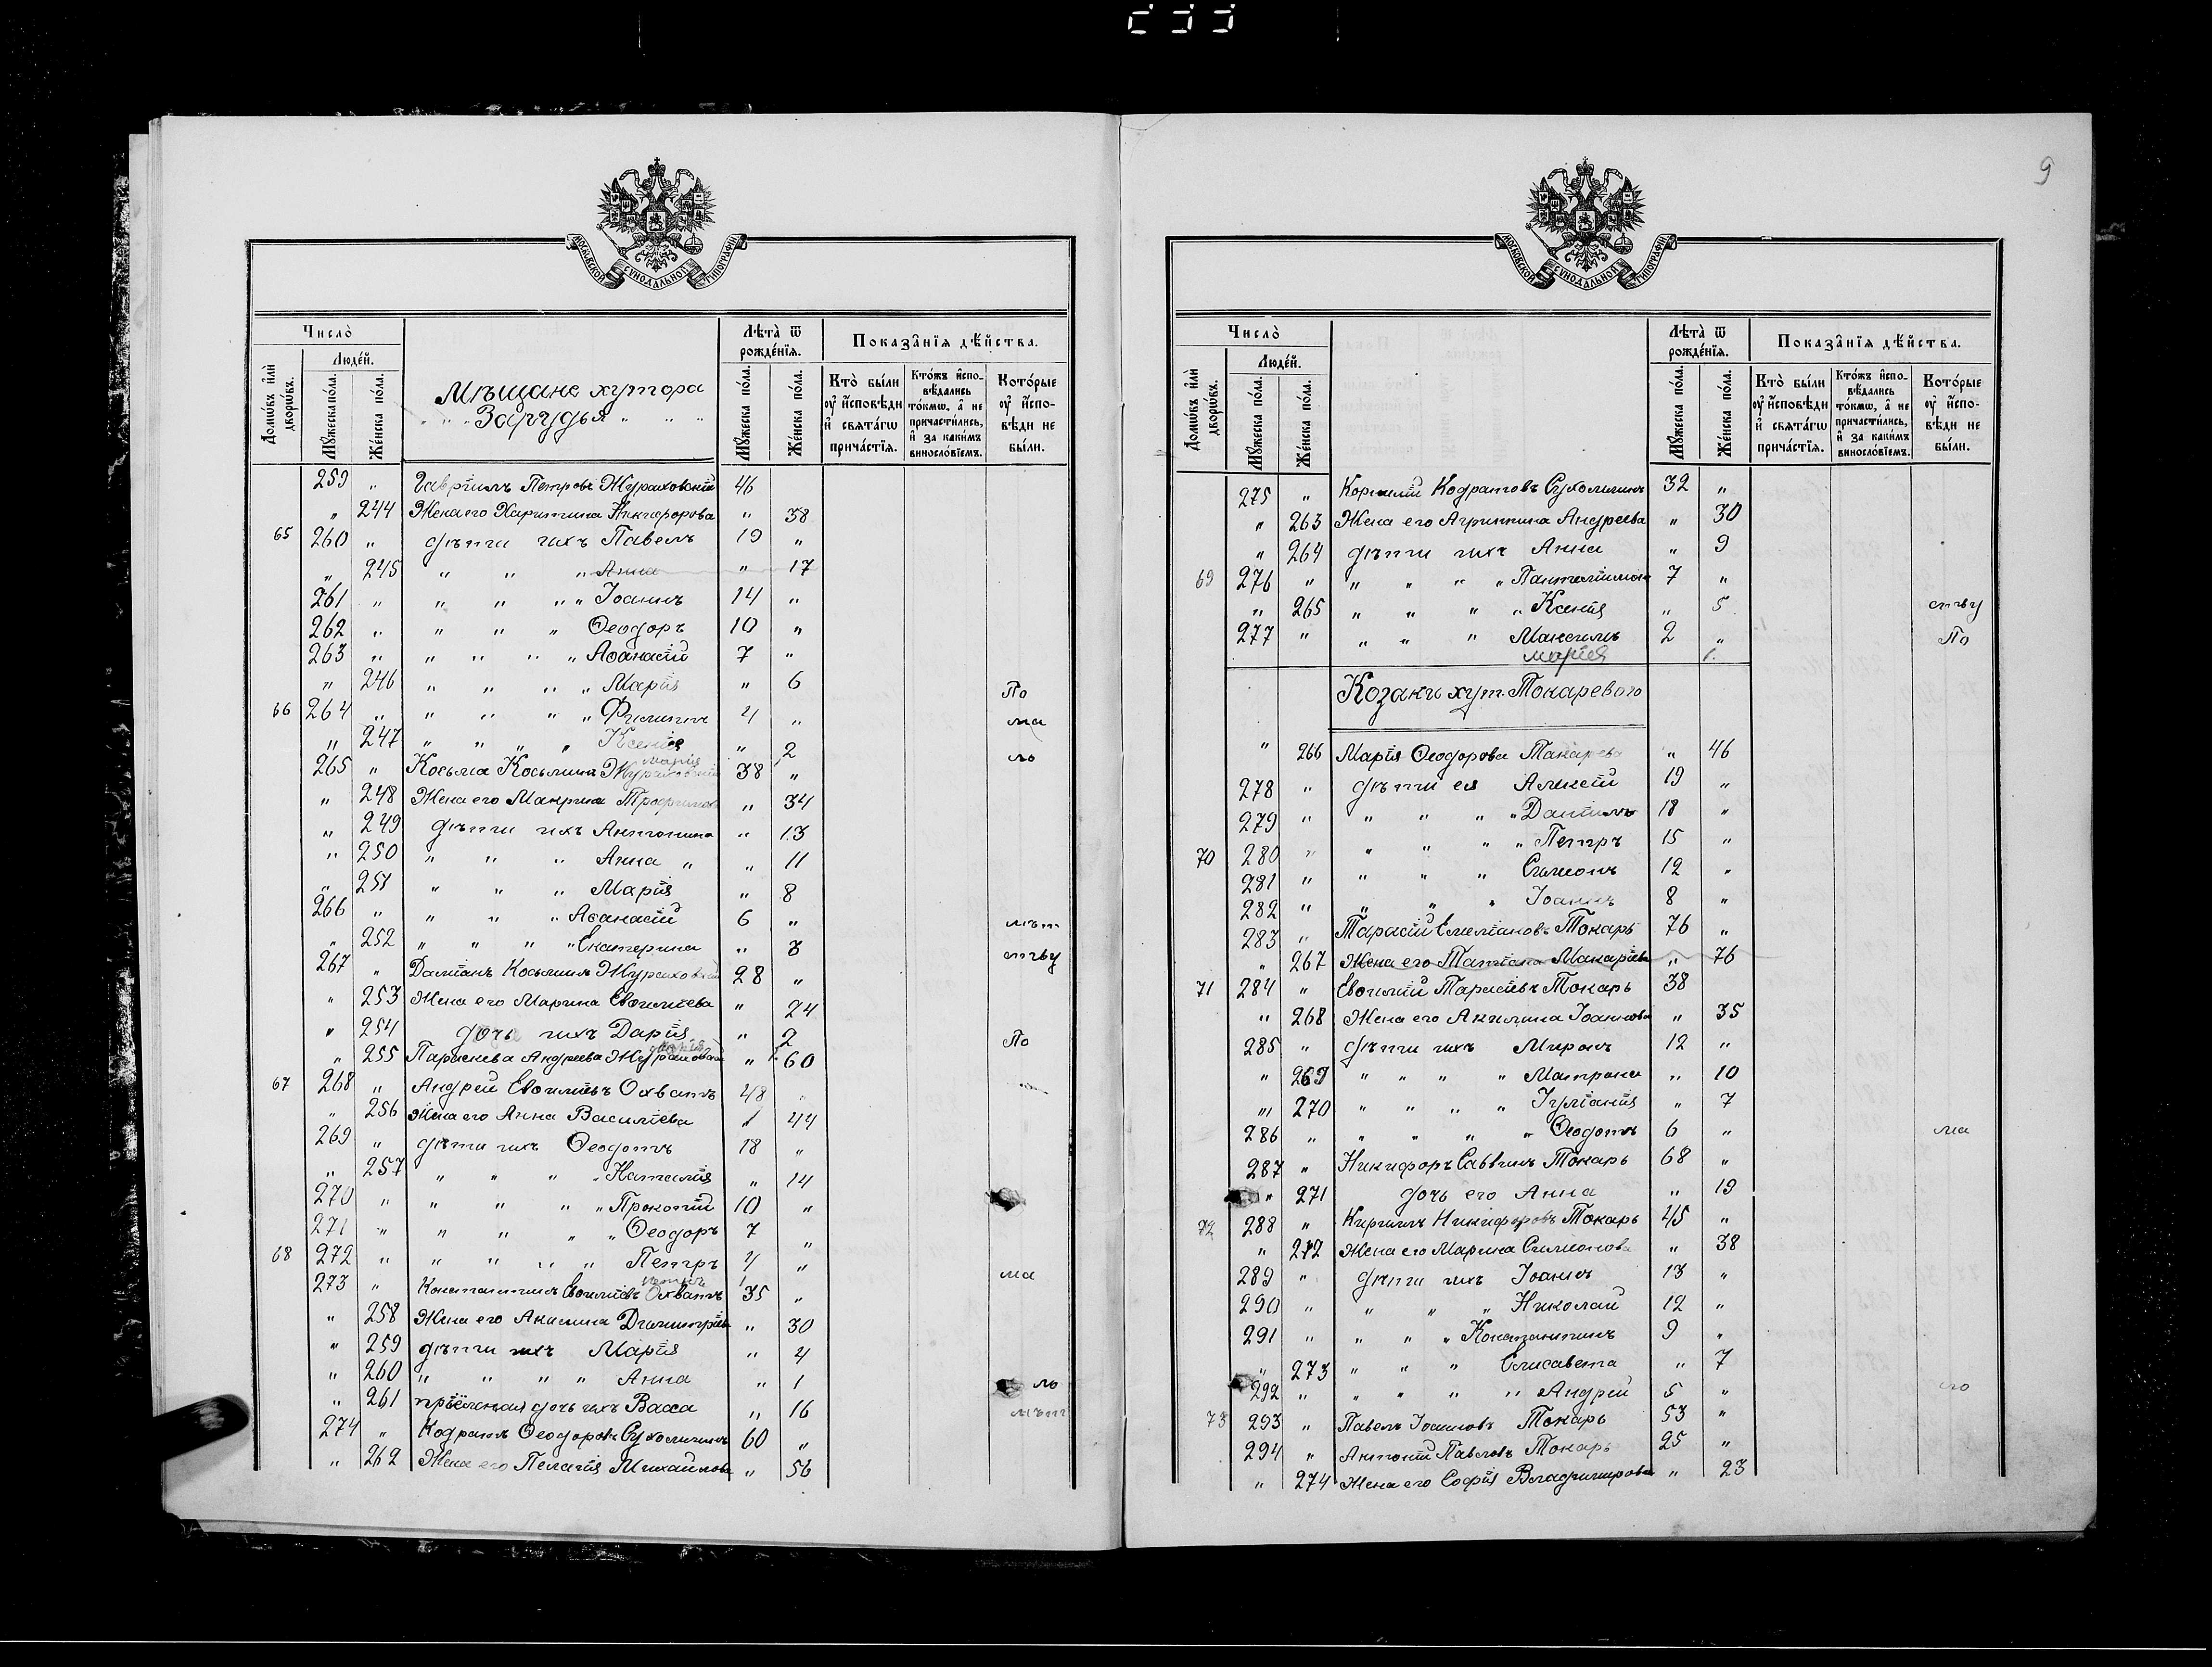 9
МОСКОВСКОЙ СѴНОДАЛЬНОЙ ТИПОГРАФІИ
Число̀
Домѡ́въ и҆лѝ дворѡ́въ.
Люде́й.
Мꙋ́жеска по́ла.
Же́нска по́ла.
Мѣщане хутора
" " Заруды " " "
Лѣта̀ ѿ рожде́нїѧ.
Мꙋ́жеска по́ла.
Же́нска по́ла.
Показа̑нїѧ дѣ́йства.
Кто̀ бы́ли ᲂу҆ и҆́сповѣди и҆ свѧта́гѡ прича́стїѧ.
Кто́жъ и҆спо­вѣ́дались то́кмѡ, а҆ не причасти́лись, и҆ за каки́мъ винosло́вїемъ.
Кото́рые ᲂу҆ и҆́спо­вѣди не бы́ли.
259 " Гавріилъ Петровъ Жураховскій 46
" 244 Жена его Харитина Никифорова " 38
65 260 " дѣти ихъ Павелъ 19 "
" 245 " " " Анна " 17
261 " " " " " Іоаннъ 14 "
262 " " " " Ѳеодоръ 10 "
263 " " " " " Аѳанасій 7 "
" 246 " " " " Марія " 6 По
66 264 " " " " " Филиппъ 4 " ма
" 247 " " " " Ксенія " 2
Марія
265 " Косьма Косьминъ Жураховскій 38 " ло
" 248 Жена его Макрина Трофимова " 34
" 249 дѣти ихъ Антонина " 13
" 250 " " " Анна " " 11
" 251 " " " Марія " 8
266 " " " " Аѳанасій 6 " лѣт
" 252 " " " " Екатерина " 3 ству
267 " Даміанъ Косьминъ Жураховскій 28 "
" 253 Жена его Марина Евѳиміева " 24
" 254 дочь ихъ Дарія " 2 По
" 255 Параскева Андреева Жураховская " 60
67 268 " Андрей Евѳиміевъ Охватъ 48 "
" 256 Жена его Анна Василіева " 44
269 " дѣти ихъ Ѳеодотъ 18 "
" 257 " " " " Наталія " 14
270 " " " " " Прокопій 10 "
271 " " " " " Ѳеодоръ 7 "
68 272 " " " " " Петръ 4 " ма
273 " Константинъ Евѳиміевъ Охватъ 35 "
" 258 Жена его Акилина Димитріева " 30
" 259 дѣти ихъ Марія " 4
" 260 " " " " Анна " 1 ло
" 261 пріемная дочь ихъ Васса " 16 лѣт
274 " Кодратъ Ѳеодоровъ Сухомлинъ 60 "
" 262 Жена его Пелагія Михайлова " 56
МОСКОВСКОЙ СѴНОДАЛЬНОЙ ТИПОГРАФІИ
Число̀
Домѡ́въ и҆лѝ дворѡ́въ.
Люде́й.
Мꙋ́жеска по́ла.
Же́нска по́ла.
Лѣта̀ ѿ рожде́нїѧ.
Мꙋ́жеска по́ла.
Же́нска по́ла.
Показа̑нїѧ дѣ́йства.
Кто̀ бы́ли ᲂу҆ и҆́сповѣди и҆ свѧта́гѡ прича́стїѧ.
Кто́жъ и҆спо­вѣ́дались то́кмѡ, а҆ не причасти́лись, и҆ за каки́мъ виносло́вїемъ.
Кото́рые ᲂу҆ и҆́спо­вѣди не бы́ли.
275 " Корнилій Кодратовъ Сухомлинъ 32 "
" 263 Жена его Агриппина Андреева " 30
" 264 дѣти ихъ Анна " 9
69 276 " " " " " Пантелиимонъ 7 "
" 265 " " " " Ксенія " 5 ству
277 " " " " Максимъ 2 " По
Марія 1
Козаки хут. Токаревого
" 266 Марія Ѳеодорова Токарева " 46
278 " дѣти ея Алексій 19 "
279 " " " " " Даніилъ 18 "
70 280 " " " " " Петръ 15 "
281 " " " " Симеонъ 12 "
282 " " " " Іоаннъ 8 "
283 " Тарасій Емеліановъ Токарь 76 "
" 267 Жена его Татіана Макаріева " 76
71 284 " Евѳимій Тарасіевъ Токарь 38
" 268 Жена его Акилина Іоаннова " 35
285 " дѣти ихъ Миронъ 12 "
" 269 " " " " Матрона " 10
" 270 " " " " Іуліанія " 7
286 " " " " " Ѳеодотъ 6 " ма
287 " Никифоръ Саввинъ Токарь 68 "
" 271 дочь его Анна " 19
72 288 " Кириллъ Никифоровъ Токарь 45 "
" 272 Жена его Марина Симеонова " 38
289 " дѣти ихъ Іоаннъ 13 "
290 " " " " Николай 12 "
291 " " " " Константинъ 9 "
" 273 " " " Елисавета " 7
292 " " " " " Андрей 5 " ло
73 293 " Павелъ Іоанновъ Токарь 53 "
294 " Антоній Павловъ Токарь 25 "
" 274 Жена его Софія Владимирова " 23